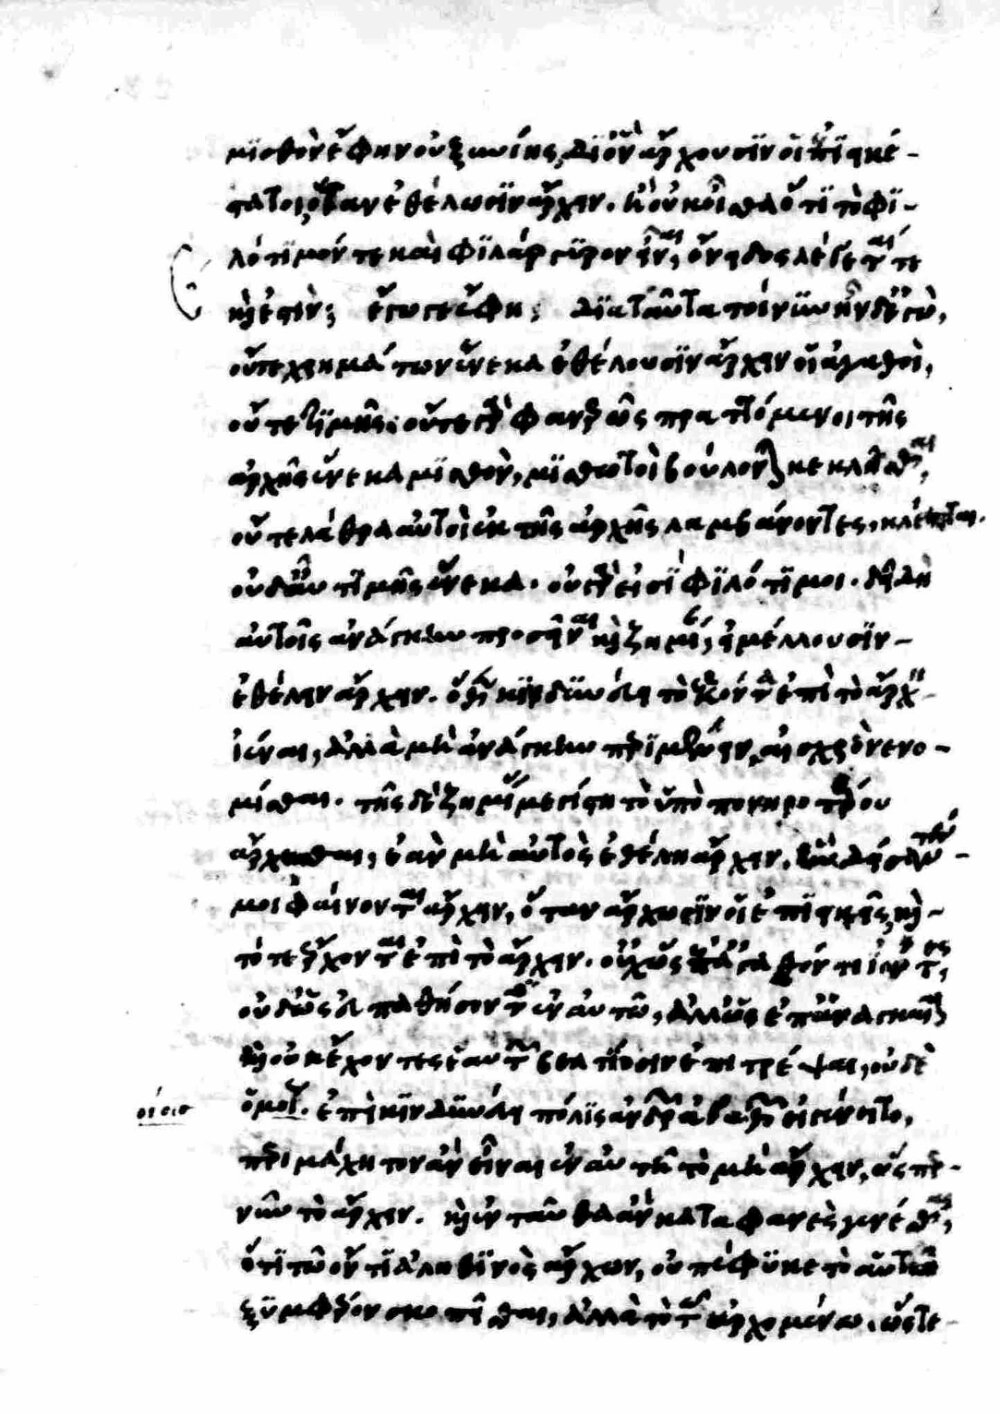 μϊσθὸν ἔφην οὐ ξυνίης, δι' ὃν ἄρχουσϊν οἱ ἐπϊεικέ-
στατοι, ὅταν ἐθέλωσϊν ἄρχειν. ἢ οὐκ οἶσθα ὅτϊ τὸ φϊ-
λότϊμόν τε καὶ φϊλάργϋρον εἶναι, ὄνειδος λέγεταί τε
καὶ ἔστιν; ἔγωγε ἔφη; δϊὰ ταῦτα τοίνϋν ἦν δ' ἐγὼ,
οὔτε χρημάτων ἕνεκα ἐθέλουσϊν ἄρχειν οἱ ἀγαθοὶ,
οὔτε τϊμῆς. οὔτε γὰρ φανερῶς πραττόμενοι τῆς
ἀρχῆς ἕνεκα μϊσθὸν, μϊσθωτοὶ βούλονται κεκλῆσθαι,
οὔτε λάθρα αὐτοὶ ἐκ τῆς ἀρχῆς λαμβάνοντες, κλέπται.
οὐδ' αὖ τϊμῆς ἕνεκα. οὐ γάρ εἰσϊ φϊλότϊμοι. δεῖ δὴ
αὐτοῖς ἀνάγκην προσεῖναι καὶ ζημίαν, εἰ μέλλουσϊν
ἐθέλειν ἄρχειν. ὅθεν κϊνδϋνεύει τὸ ἑκόντα ἐπὶ τὸ ἄρχειν
ἰέναι, ἀλλὰ μὴ ἀνάγκην περϊμένειν, αἰσχρὸν νενο-
μίσθαι. τῆς δὲ ζημίας μεγίστη τὸ ὑπὸ πονηροτέρου
ἄρχεσθαι, ἐὰν μὴ αὐτὸς ἐθέλη ἄρχειν. ἣν δείσαντές
μοι φαίνονται ἄρχειν, ὅταν ἄρχωσϊν οἱ ἐπϊεικεῖς, καὶ
τότε ἔρχονται ἐπὶ τὸ ἄρχειν. οὐχ ὡς ἐπ' ἀγαθόν τι ἰόντες,
οὐδ' ὡς εὐπαθήσοντες ἐν αὐτῶ, ἀλλ' ὡς ἐπ' ἀναγκαῖον
καὶ οὐκ ἔχοντες ἑαυτῶν βελτίοσιν ἐπιτρέψαι, οὐδὲ
ὁμοίοις. ἐπεὶ κϊνδϋνεύει πόλϊς ἀνδρῶν ἀγαθῶν εἰ γένοιτο,
περιμάχητον ἂν εἶναι ἐν αὐτῆ τὸ μὴ ἄρχειν, ὥσπερ
νῦν τὸ ἄρχειν. καὶ ἐνταῦθα ἂν καταφανὲς γενέσθαι,
ὅτϊ τῶ ὄντϊ ἀληθϊνὸς ἄρχων, οὐ πέφϋκε τὸ αὑτῶ
ξϋμφέρον σκοπεῖσθαι, ἀλλὰ τὸ τῶ ἀρχομένω. ὥστε
οίοισ